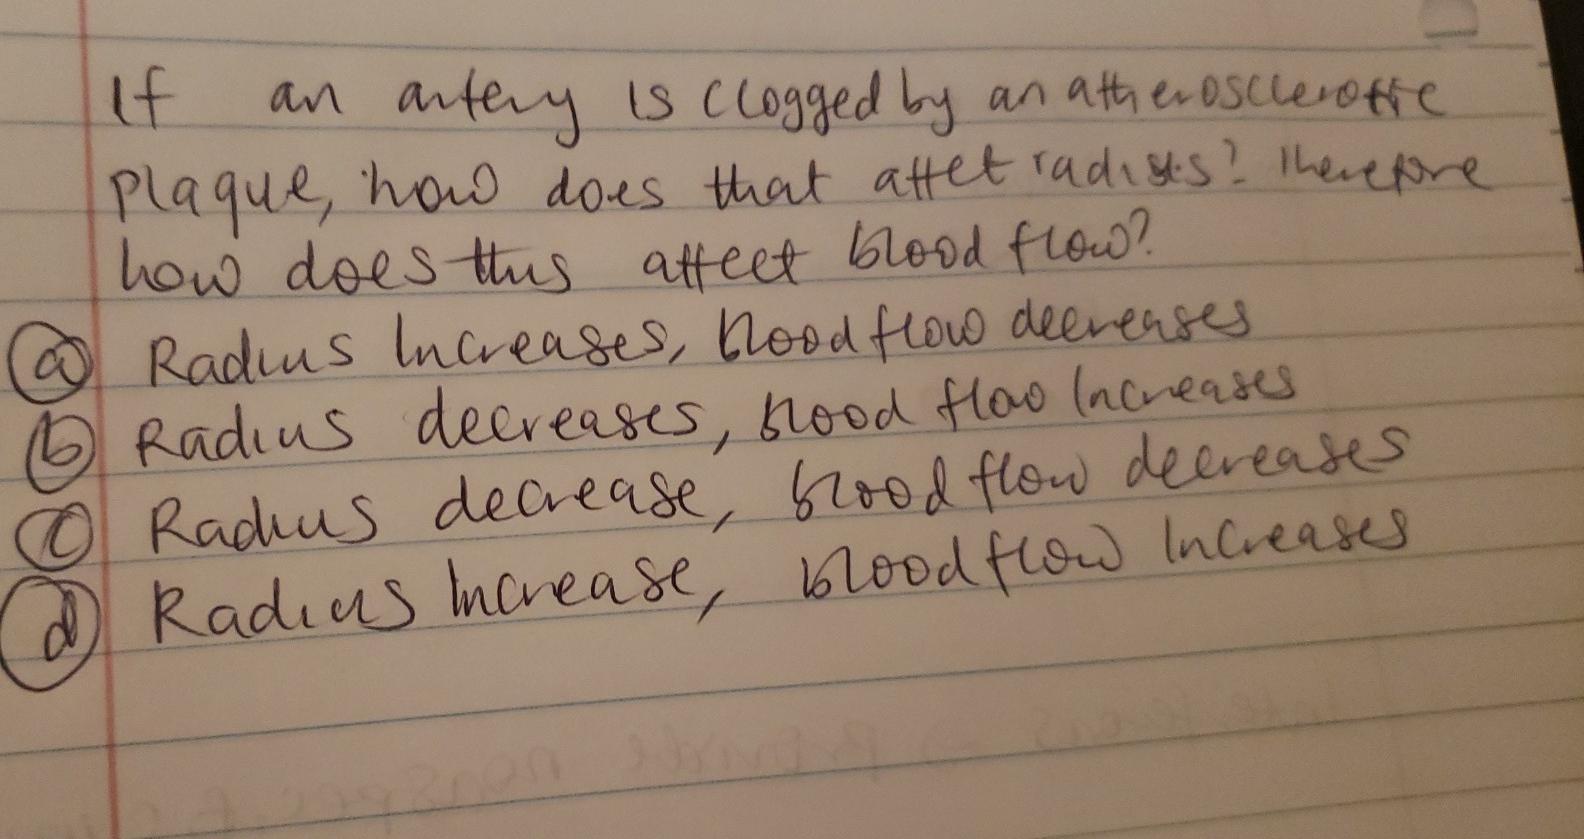 If an artery is clogged by an atherosclerotic
plaque, how does that affet radius? Therefore
how does this affect blood flow?
a) Radius Increases, blood flow decreases
b) Radius decreases, blood flow Increases
c) Radius decrease, blood flow decreases
d) Radius Increase, blood flow Increases